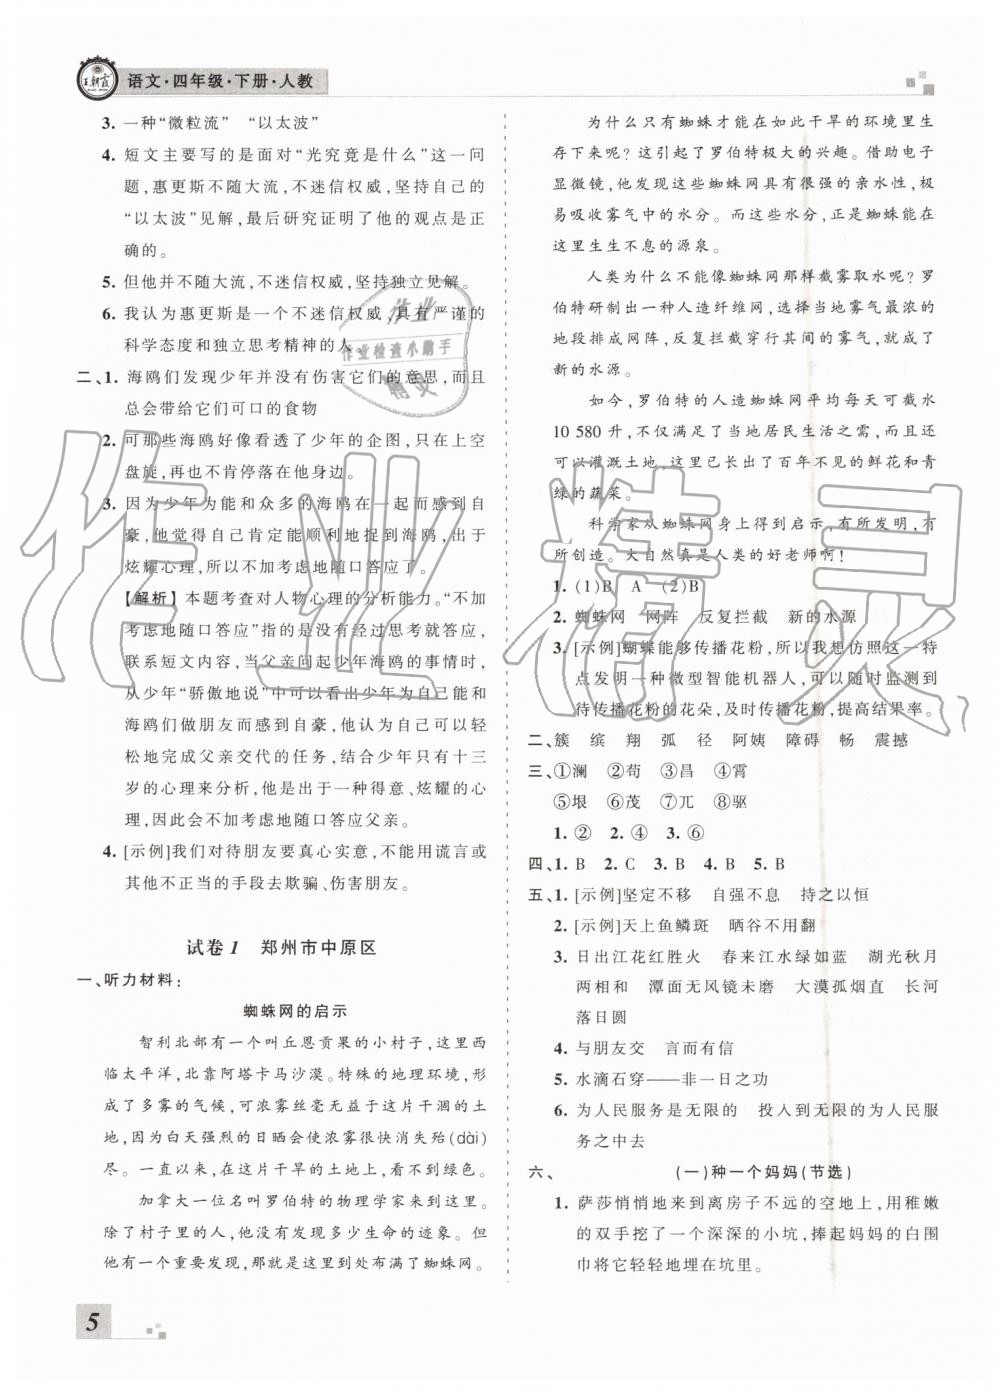 王朝霞
语文·四年级·下册·人教
3. 一种“微粒流” “以太波”
4. 短文主要写的是面对“光究竟是什么”这一问
题,惠更斯不随大流,不迷信权威,坚持自己的
“以太波”见解,最后研究证明了他的观点是正
确的。
5. 但他并不随大流,不迷信权威,坚持独立见解。
6. 我认为惠更斯是一个不迷信权威,具有严谨的
科学态度和独立思考精神的人。
二、1. 海鸥们发现少年并没有伤害它们的意思,而且
总会带给它们可口的食物
2. 可那些海鸥好像看透了少年的企图,只在上空
盘旋,再也不肯停落在他身边。
3. 因为少年为能和众多的海鸥在一起而感到自
豪,他觉得自己肯定能顺利地捉到海鸥,出于
炫耀心理,所以不加考虑地随口答应了。
【解析】本题考查对人物心理的分析能力。“不加
考虑地随口答应”指的是没有经过思考就答应,
联系短文内容,当父亲问起少年海鸥的事情时,
从少年“骄傲地说”中可以看出少年为能和众多
海鸥们做朋友而感到自豪,他认为自己可以轻
松地完成父亲交代的任务,结合少年只有十三
岁的心理来分析,他是出于一种得意、炫耀的心
理,因此会不加考虑地随口答应父亲。
4. [示例]我们对待朋友要真心实意,不能用谎言或
其他不正当的手段去欺骗、伤害朋友。
试卷1 郑州市中原区
一、听力材料:
蜘蛛网的启示
智利北部有一个叫丘恩贡果的小村子,这里西
临太平洋,北靠阿塔卡马沙漠。特殊的地理环境,形
成了多雾的气候,可浓雾丝毫无益于这片干涸的土
地,因为白天强烈的日晒会使浓雾很快消失殆(dài)
尽。一直以来,在这片干旱的土地上,看不到绿色。
加拿大一位名叫罗伯特的物理学家来到这里。
除了村子里的人,他没有发现多少生命的迹象。但他
有一个重要发现,那就是这里到处布满了蜘蛛网。
为什么只有蜘蛛才能在如此干旱的环境里生
存下来呢?这引起了罗伯特极大的兴趣。借助电子
显微镜,他发现这些蜘蛛网具有很强的亲水性,极
易吸收雾气中的水分。而这些水分,正是蜘蛛能在
这里生生不息的源泉。
人类为什么不能像蜘蛛网那样截雾取水呢?罗
伯特研制出一种人造纤维网,选择当地雾气最浓的
地段排成网阵,反复拦截穿行其间的雾气,就成了
新的水源。
如今,罗伯特的人造蜘蛛网平均每天可截水
10 580升,不仅满足了当地居民生活之需,而且还
可以灌溉土地,这里长出了百年不见的鲜花和青
绿的蔬菜。
科学家从蜘蛛网身上得到启示,有所发明,有
所创造。大自然真是人类的好老师啊!
1. (1)B A (2)B
2. 蜘蛛网 网阵 反复拦截 新的水源
3. [示例]蝴蝶能够传播花粉,所以我想仿照这一特
点发明一种微型智能机器人,可以随时监测到
待传播花粉的花朵,及时传播花粉,提高结果率。
二、簇 缤 翔 弧 径 阿姨 障碍 畅 震撼
三、①澜 ②苟 ③昌 ④霄
⑤垠 ⑥茂 ⑦兀 ⑧驱
1. ② 2. ④ 3. ⑥
四、1. B 2. C 3. B 4. B 5. B
五、1. [示例]坚定不移 自强不息 持之以恒
2. [示例]天上鱼鳞斑 晒谷不用翻
3. 日出江花红胜火 春来江水绿如蓝 湖光秋月
两相和 潭面无风镜未磨 大漠孤烟直 长河
落日圆
4. 与朋友交 言而有信
5. 水滴石穿——非一日之功
6. 为人民服务是无限的 投入到无限的为人民服
务之中去
六、 (一)种一个妈妈(节选)
1. 萨莎悄悄地来到离房子不远的空地上,用稚嫩
的双手挖了一个深深的小坑,捧起妈妈的白围
巾将它轻轻地埋在坑里。
5
作业精灵
作业
作业检查小助手
精灵